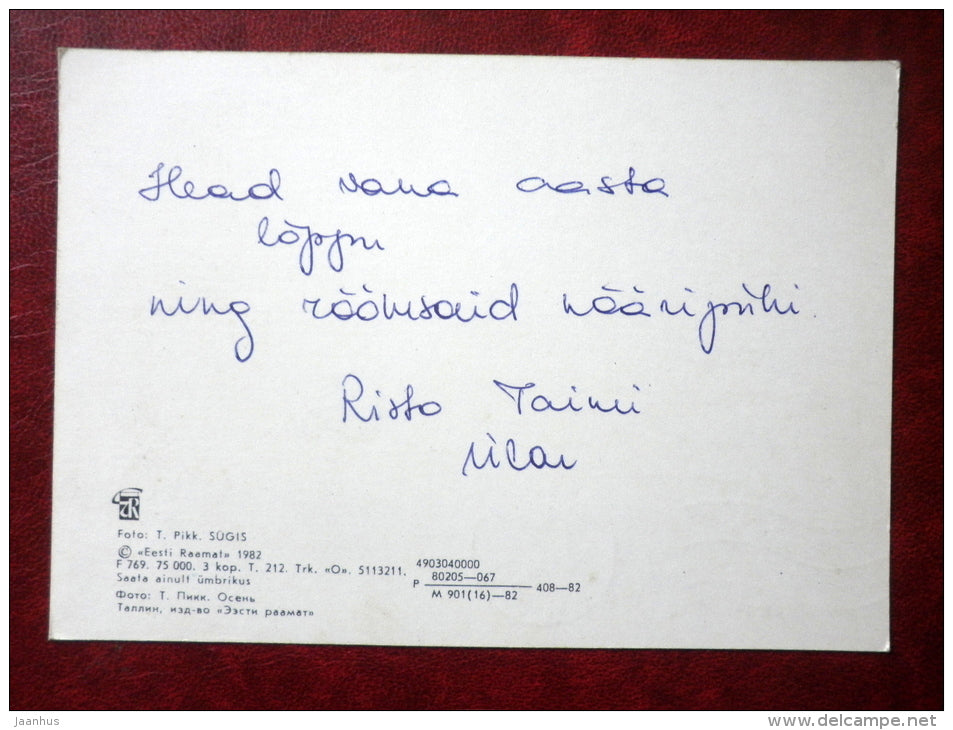 Head vana aasta
lõppu
ning rõõmsaid nääripühi.
Risto Taimi
Ülar
Foto: T. Pikk. SÜGIS
© «Eesti Raamat» 1982
F 769. 75 000. 3 kop. T. 212. Trk. «O». 5113211.
Saata ainult ümbrikus
Фото: Т. Пикк. Осень
Таллин, изд-во «Ээсти раамат»
4903040000
Р 80205—067 408—82
М 901(16)—82
Jaanhus
www.delcampe.net